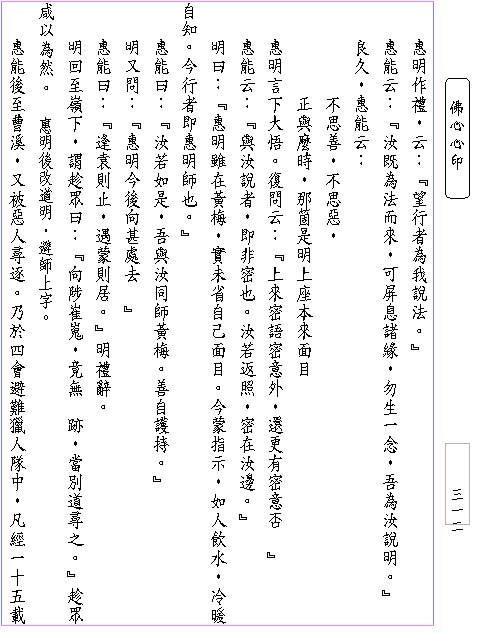 佛心心印
三一二
惠明作禮，云：『望行者為我說法。』
惠能云：『汝既為法而來，可屏息諸緣，勿生一念，吾為汝說明。』
良久，惠能云：
不思善，不思惡，
正與麼時，那箇是明上座本來面目
惠明言下大悟。復問云：『上來密語密意外，還更有密意否　』
惠能云：『與汝說者，即非密也。汝若返照，密在汝邊。』
明曰：『惠明雖在黃梅，實未省自己面目。今蒙指示，如人飲水，冷暖
自知。今行者即惠明師也。』
惠能曰：『汝若如是，吾與汝同師黃梅。善自護持。』
明又問：『惠明今後向甚處去　』
惠能曰：『逢袁則止，遇蒙則居。』明禮辭。
明回至嶺下，謂趁眾曰：『向陟崔嵬，竟無　跡，當別道尋之。』趁眾
咸以為然。　惠明後改道明，避師上字。
惠能後至曹溪，又被惡人尋逐。乃於四會避難獵人隊中，凡經一十五載